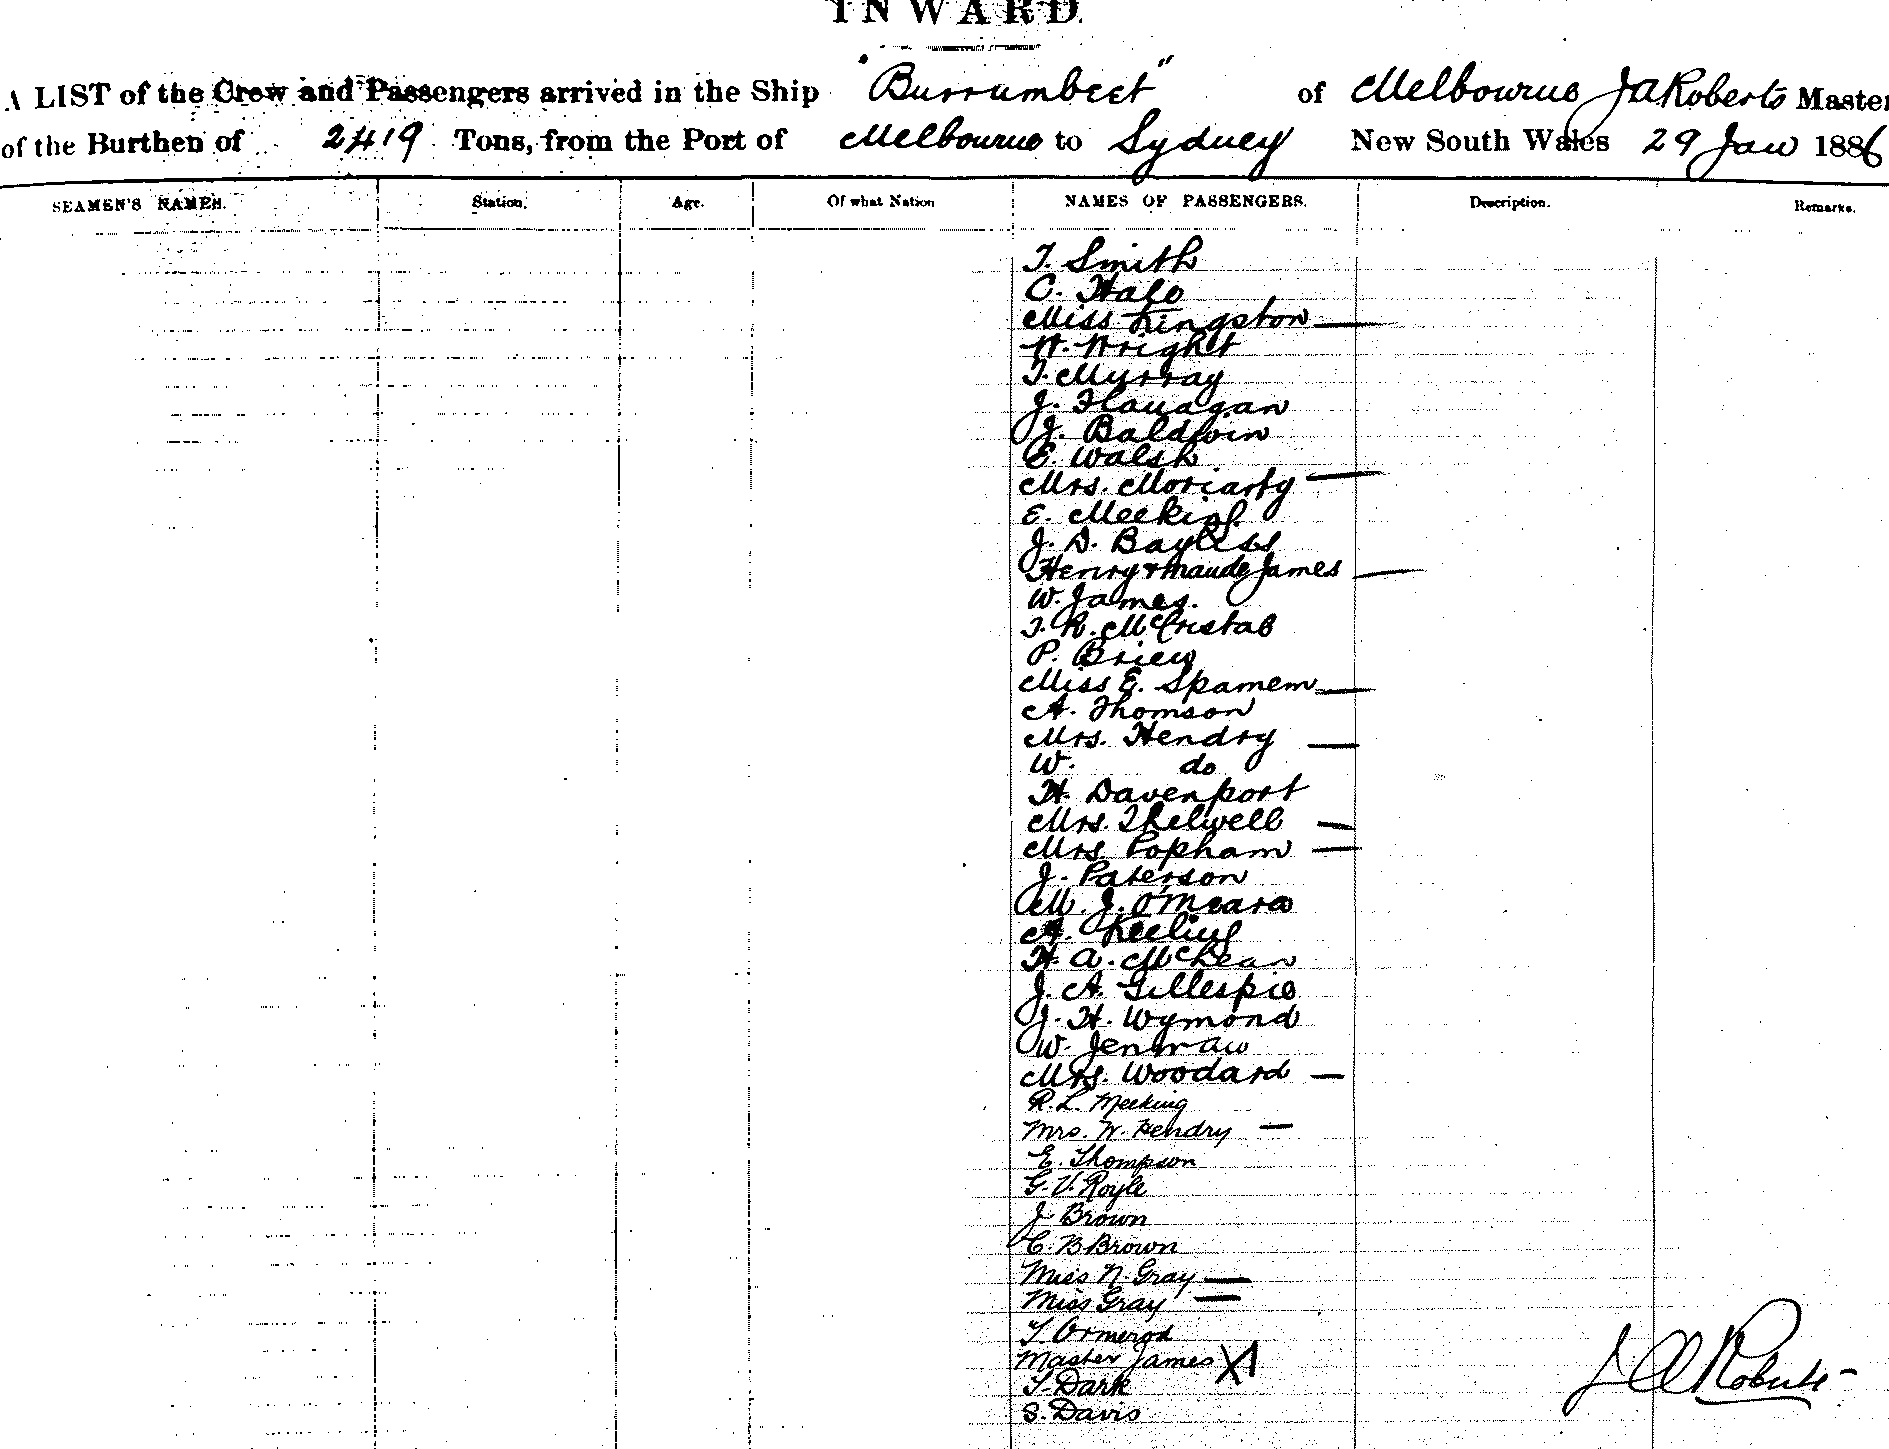 INWARD.
A LIST of the Crew and Passengers arrived in the Ship "Burrumbeet" of Melbourne J A Roberts Master
of the Burthen of 2419 Tons, from the Port of Melbourne to Sydney New South Wales 29 Jan 1886
SEAMEN'S NAMES. Station. Age. Of what Nation NAMES OF PASSENGERS. Description. Remarks.
T. Smith
C. Hale
Miss Kingston
W. Wright
T. Murray
J. Flanagan
J. Baldwin
E. Walsh
Mrs. Moriarty
E. Meeking
J. D. Bayliss
Henry & Maude James
W. James.
T. R. McCristal
P. Brien
Miss E. Spamem
A. Thomson
Mrs. Hendry
W. do
H. Davenport
Mrs. Thelwell
Mrs Popham
J. Paterson
M. J. O'Meara
A. Keeling
H. A. McLean
J. A. Gillespie
J. H. Wymond
W. Jenman
Mrs. Woodard
R. L. Meeking
Mrs. W. Hendry
E. Thompson
G. V. Royle
J Brown
C. B Brown
Miss N. Gray
Miss Gray
T Ormerod
Master James X1
T. Dark
J A Roberts
S. Davis